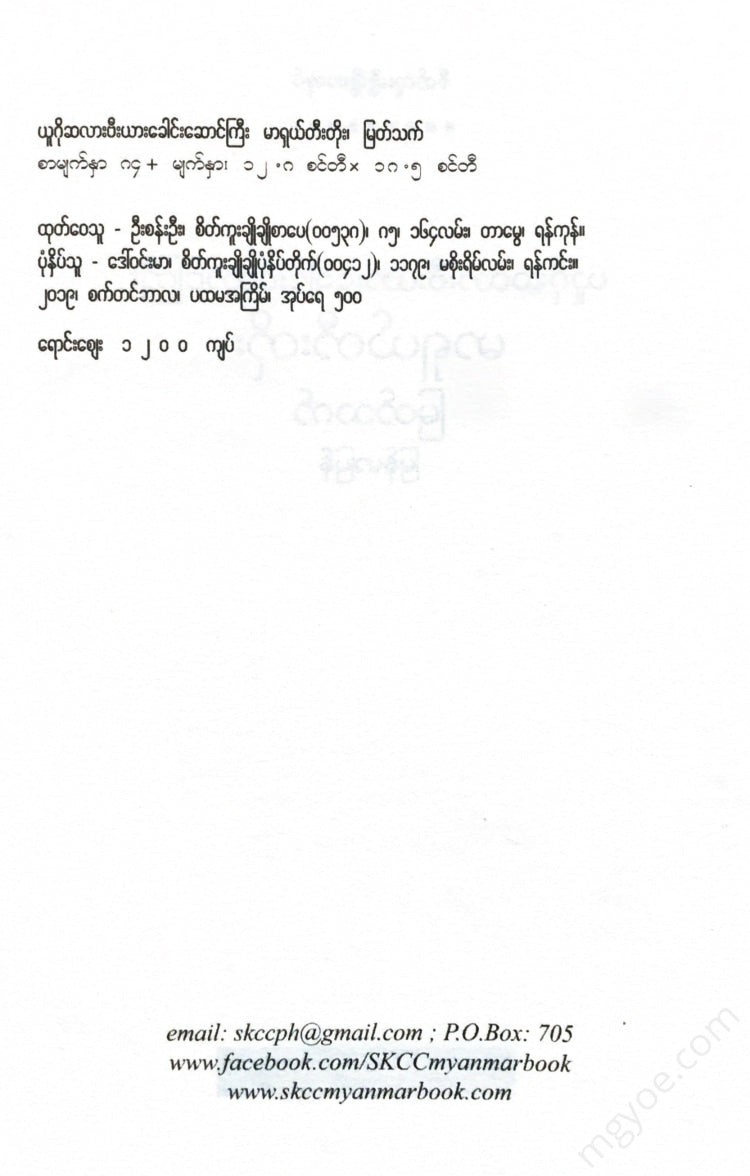 ယူဂိုဆလားဗီးယားခေါင်းဆောင်ကြီး မာရှယ်တီးတိုး၊ မြတ်သက်
စာမျက်နှာ ၈၄ + မျက်နှာ၊ ၁၂.၈ စင်တီ × ၁၈.၅ စင်တီ
ထုတ်ဝေသူ - ဦးစန်းဦး၊ စိတ်ကူးချိုချိုစာပေ(၀၀၅၃၈)၊ ၈၅၊ ၁၆၄လမ်း၊ တာမွေ၊ ရန်ကုန်။
ပုံနှိပ်သူ - ဒေါ်ဝင်းမာ၊ စိတ်ကူးချိုချိုပုံနှိပ်တိုက်(၀၀၄၁၂)၊ ၁၁၇၉၊ မစိုးရိမ်လမ်း၊ ရန်ကင်း။
၂၀၁၉၊ စက်တင်ဘာလ၊ ပထမအကြိမ်၊ အုပ်ရေ ၅၀၀
ရောင်းဈေး ၁၂၀၀ ကျပ်
email: skccph@gmail.com ; P.O.Box: 705
www.facebook.com/SKCCmyanmarbook
www.skccmyanmarbook.com
mgyoe.com